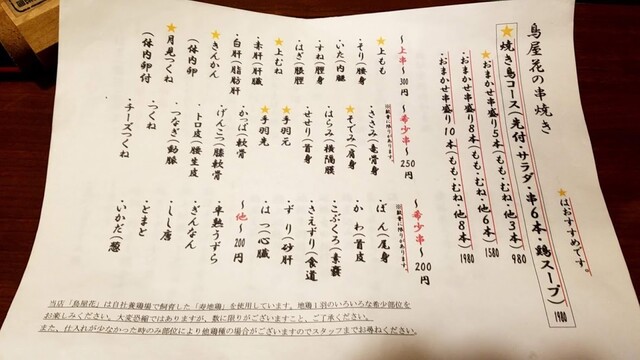 鳥屋花の串焼き
★はおすすめです。
★焼き鳥コース(先付・サラダ・串6本・鶏スープ) 1980
★おまかせ串盛り5本(もも・むね・他3本) 980
・おまかせ串盛り8本(もも・むね・他6本) 1580
・おまかせ串盛り10本(もも・むね・他8本) 1980
～上串～300円
★上もも
・そり(腰身
・いた(内腿
・すね(脛身
・はぎ(脹脛
★上むね
・赤肝(肝臓
・白肝(脂肪肝
★きんかん
(体内卵
★月見つくね
(体内卵付
～希少串～250円
※数量に限りがあります。
・ささみ(竜骨身
★そでみ(肩身
・はらみ(横隔膜
・せせり(首身
★手羽元
★手羽先
・かっぱ(軟骨
・げんこつ(膝軟骨
・トロ皮(腰生皮
・つなぎ(動脈
・つくね
・チーズつくね
～希少串～200円
※数量に限りがあります。
・ぼん(尾身
・かわ(首皮
・こぶくろ(素嚢
・さえずり(食道
・ずり(砂肝
・はつ(心臓
～他～200円
・半熟うずら
・ぎんなん
・しし唐
・とまと
・いかだ(葱
当店「鳥屋花」は自社養鶏場で飼育した「寿地鶏」を使用しています。地鶏1羽のいろいろな希少部位を
お楽しみください。大変恐縮ではありますが、数に限りがございますこと、ご了承ください。
また、仕入れが少なかった時のみ部位により他鶏種の場合がございますのでスタッフまでお尋ねください。